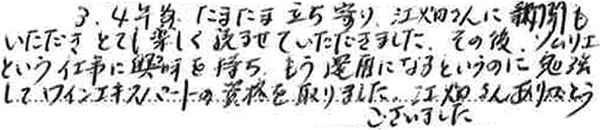 3、4年前、たまたま立ち寄り、江畑さんに親切も
いただき とても楽しく読ませていただきました。その後、ソムリエ
という仕事に興味を持ち、もう還暦になるというのに勉強
してワインエキスパートの資格を取りました。江畑さんありがとう
ございました